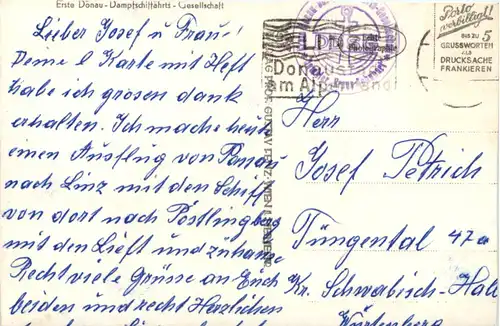 Erste Donau-Dampfschiffahrts-Gesellschaft
Lieber Josef u Frau
Deine l Karte mit Heft
habe ich grosen dank
erhalten. Ich mache heute
einen Ausflug von Passau
nach Linz mit den Schiff
von dort nach Pöstlingberg
mit den Lieft und zuhause
Recht viele Grüsse an Euch
beiden und recht Herzlichen
LINZ
Donau
am Alpenrand
Porto
verbilligt!
BIS ZU 5
GRUSSWORTEN
ALS
DRUCKSACHE
FRANKIEREN
Herr
Josef Petrich
Tüngental 47a
Kr. Schwäbisch-Hall
Würtenberg